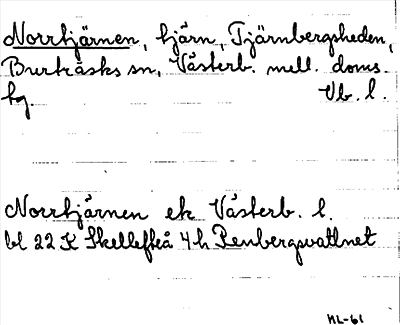 Norrtjärnen, tjärn, Tjärnbergsheden,
Burträsks sn, Västerb. mell. doms.
tg. Vb. l.
Norrtjärnen ek Västerb. l.
bl 22 K Skellefteå 4 h Renbergsvattnet
ML-61